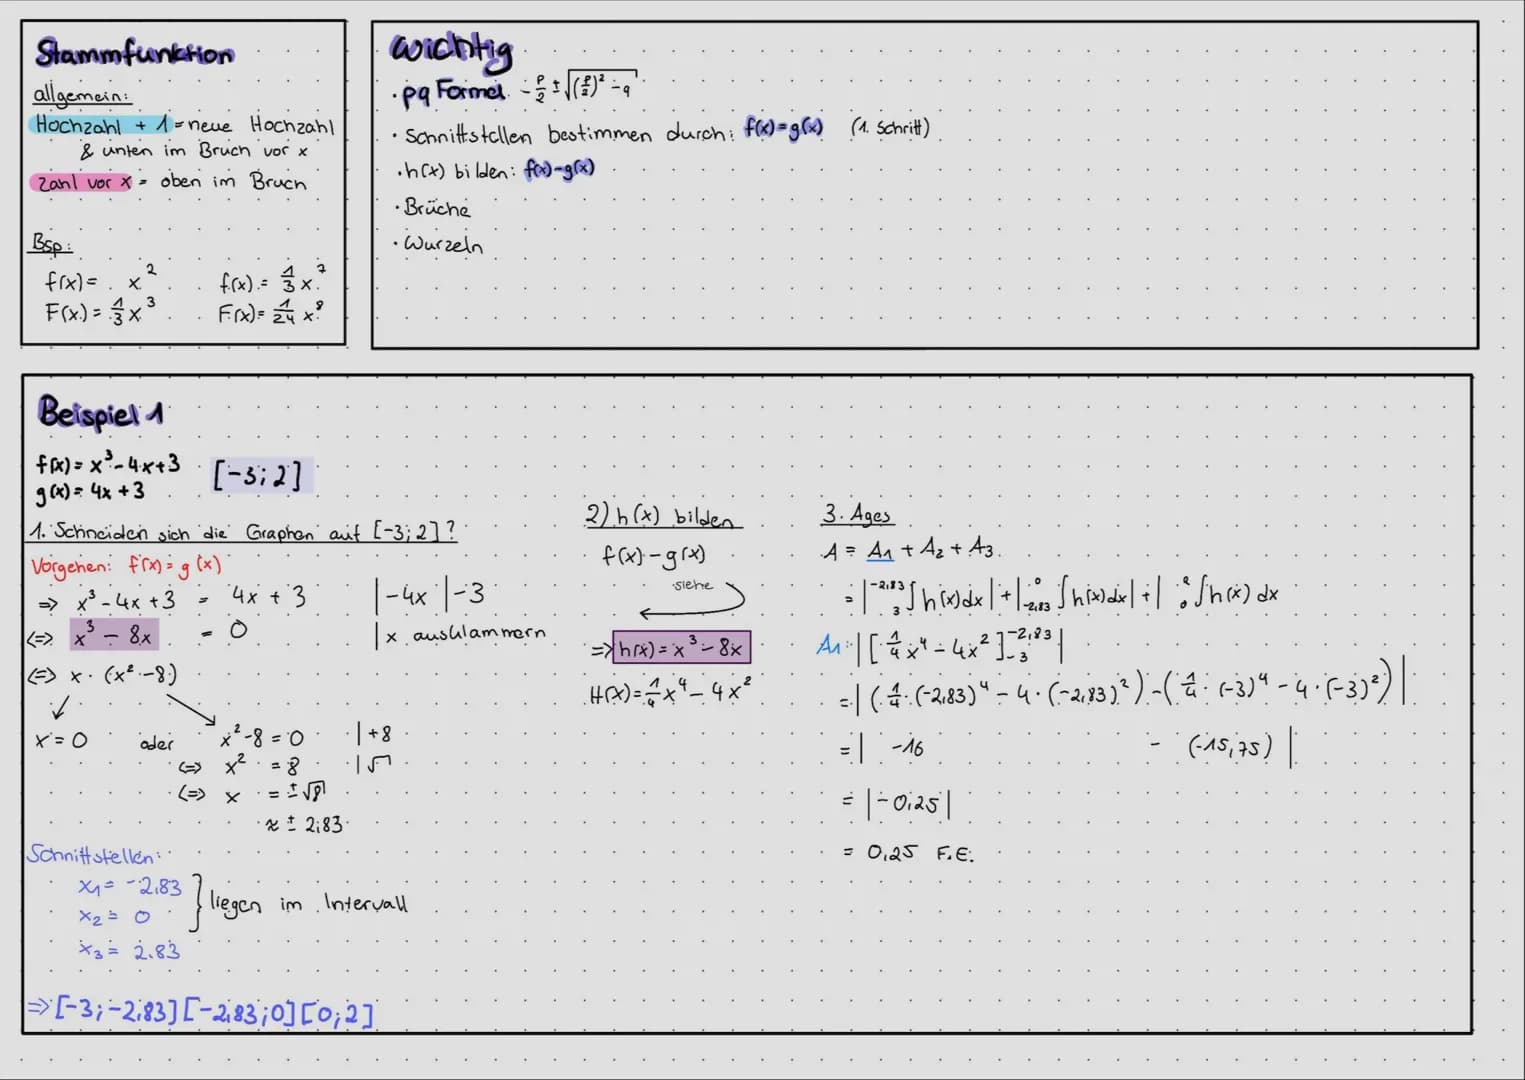 Stammfunktion
allgemein:
Hochzahl + 1 = neue Hochzahl
& unten im Bruch vor x
Zahl vor x = oben im Bruch
Bsp:
f(x) = x²
F(x) = 1/3 x³
f(x) = 1/3 x⁷
F(x) = 1/24 x⁸
Wichtig
· pq Formel -p/2 ± √((p/2)² - q)
· Schnittstellen bestimmen durch: f(x)=g(x) (1. Schritt)
· h(x) bilden: f(x)-g(x)
· Brüche
· Wurzeln
Beispiel 1
f(x) = x³ - 4x + 3
g(x) = 4x + 3
[-3; 2]
1. Schneiden sich die Graphen auf [-3; 2]?
Vorgehen: f(x) = g(x)
=> x³ - 4x + 3 = 4x + 3 | -4x | -3
<=> x³ - 8x = 0 | x ausklammern
<=> x · (x² - 8)
x = 0 oder x² - 8 = 0 | +8
<=> x² = 8 | √
<=> x = ±√8
≈ ± 2,83
Schnittstellen:
x₁ = -2,83
x₂ = 0
} liegen im Intervall
x₃ = 2.83
=> [-3; -2,83] [-2,83; 0] [0; 2]
2) h(x) bilden
f(x) - g(x)
siehe
=> h(x) = x³ - 8x
H(x) = 1/4 x⁴ - 4x²
3. Ages
A = A₁ + A₂ + A₃
= | ⁻²,⁸³₃ ∫ h(x) dx | + | ⁰₋₂,₈₃ ∫ h(x) dx | + | ²₀ ∫ h(x) dx
A₁: | [ 1/4 x⁴ - 4x² ]⁻²,⁸³₋₃ |
= | ( 1/4 · (-2,83)⁴ - 4 · (-2,83)² ) - ( 1/4 · (-3)⁴ - 4 · (-3)² ) |
= | -16 - (-15,75) |
= | -0,25 |
= 0,25 F.E.